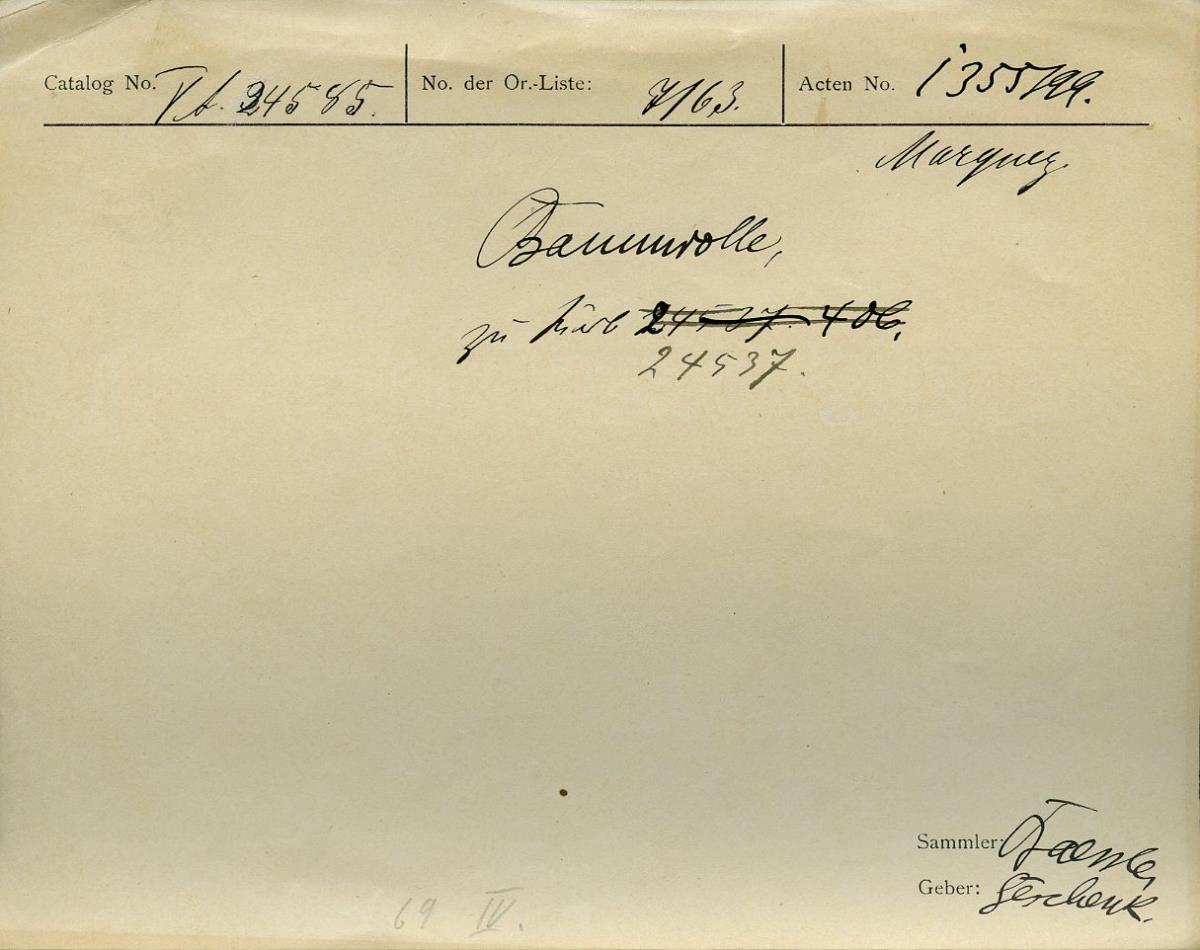 Catalog No. VA. 24585. No. der Or.-Liste: 7/63. Acten No. I 355/99.
Marquez
Baumwolle,
zu Korb 24537. 406.
24537.
Sammler: Baessler
Geber: Geschenk.
69 IV.